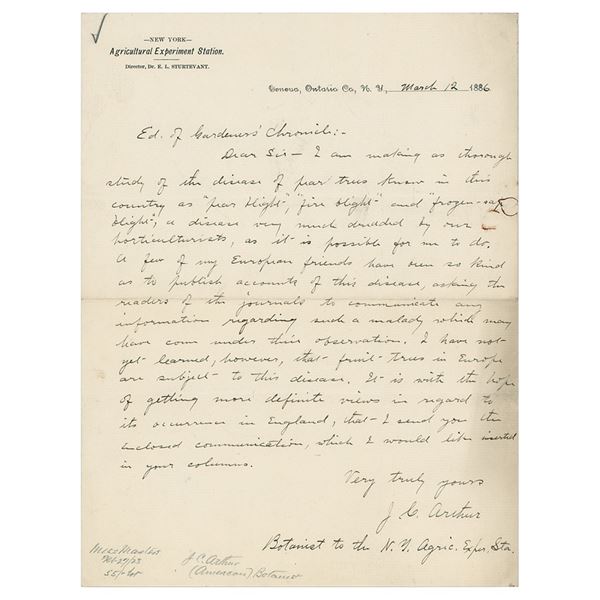 —NEW YORK—
Agricultural Experiment Station.
Director, Dr. E. L. STURTEVANT.
Geneva, Ontario Co., N. Y., March 12 1886
Ed. of Gardeners' Chronicle:-
Dear Sir — I am making as thorough
study of the disease of pear trees known in this
country as "pear blight", "fire blight" and "frozen-sap
blight", a disease very much dreaded by our
horticulturists, as it is possible for me to do.
A few of my European friends have been so kind
as to publish accounts of this disease, asking the
readers of the journals to communicate any
information regarding such a malady which may
have come under their observation. I have not
yet learned, however, that fruit trees in Europe
are subject to this disease. It is with the hope
of getting more definite views in regard to
its occurrence in England, that I send you the
enclosed communication, which I would like inserted
in your columns.
Very truly yours
J. C. Arthur
Botanist to the N. Y. Agric. Exper. Sta.
J C. Arthur
(American) Botanist